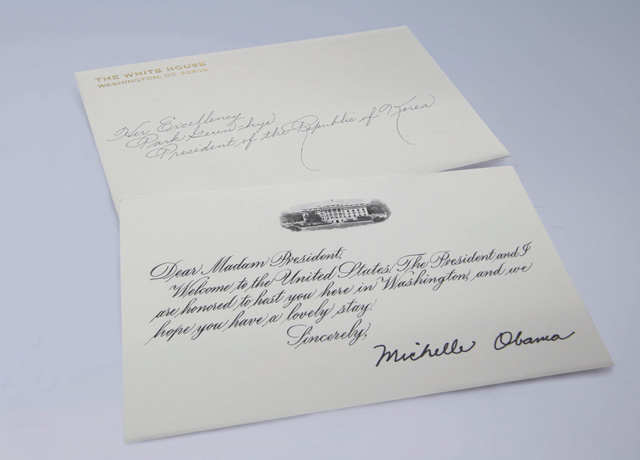 THE WHITE HOUSE
WASHINGTON, DC 20502
Her Excellency
Park Geun-hye
President of the Republic of Korea
Dear Madam President,
Welcome to the United States! The President and I
are honored to host you here in Washington, and we
hope you have a lovely stay.
Sincerely,
Michelle Obama